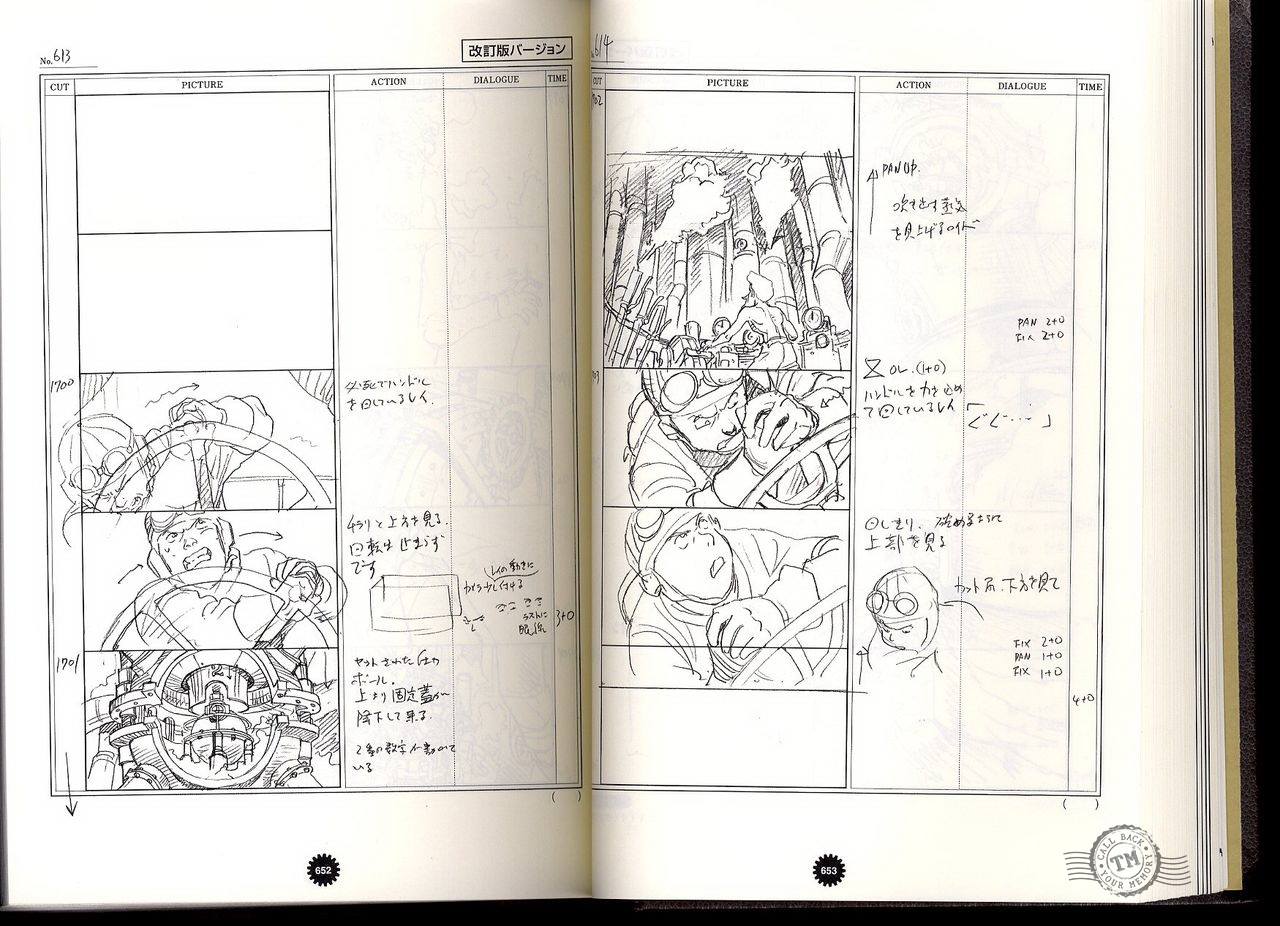 No. 613
改訂版バージョン
CUT
PICTURE
ACTION
DIALOGUE
TIME
1700
必死でハンドル
を回しているレイ.
チラリと上方を見る.
回転は止まらず
です
レイの動きに
ラストに
3+0
1701
セットされた
ボール.
上より固定蓋が
降下して来る.
2番の数字
いる
( )
652
614
CUT
PICTURE
ACTION
DIALOGUE
TIME
PAN UP.
吹き出す蒸気
を見上げるロイド
PAN 2+0
FIX 2+0
OL.(1+0)
ハンドルを力を込め
て回しているレイ
「ぐぐ……」
回しきり.
上部を見る
カット尻.下方を見て
FIX 2+0
PAN 1+0
FIX 1+0
4+0
( )
653
CALL BACK
TM
YOUR MEMORY